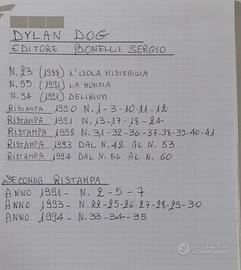 DYLAN DOG
EDITORE BONELLI SERGIO
N. 23 (1988) L'ISOLA MISTERIOSA
N. 55 (1991) LA MUMMIA
N. 54 (1991) DELIRIUM
RISTAMPA 1990 N. 1-3-10-11-12
RISTAMPA 1991 N. 13-17-18-24
RISTAMPA 1992 N. 31-32-36-37-38-39-40-41
RISTAMPA 1993 DAL N. 42 AL N. 53
RISTAMPA 1994 DAL N. 56 AL N. 60
SECONDA RISTAMPA
ANNO 1991 - N. 2-5-7
ANNO 1993 - N. 22-25-26-27-28-29-30
ANNO 1994 - N. 33-34-35
subito